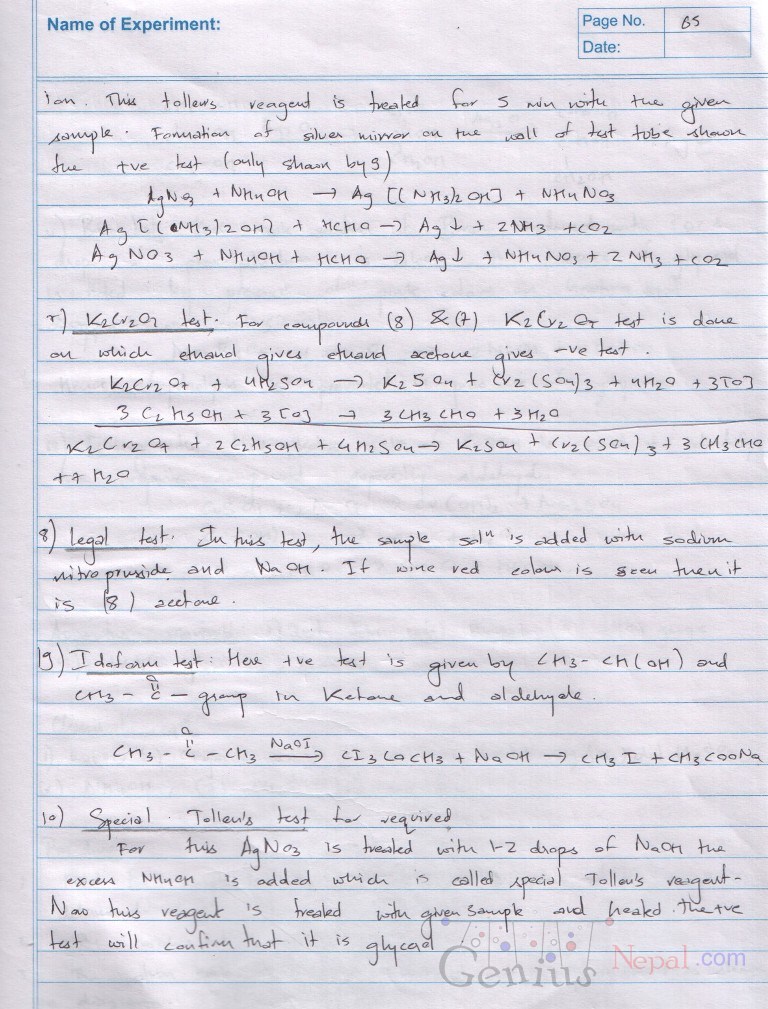 Name of Experiment:
Page No. 65
Date:
ion. This tollens reagent is treated for 5 min with the given
sample. Formation of silver mirror on the wall of test tube shown
the +ve test (only shown by 9)
AgNO3 + NH4OH → Ag [(NH3)2 OH] + NH4NO3
Ag [(NH3)2OH] + HCHO → Ag ↓ + 2NH3 + CO2
AgNO3 + NH4OH + HCHO → Ag↓ + NH4NO3 + 2NH3 + CO2
7) K2Cr2O7 test. For compounds (8) & (7) K2Cr2O7 test is done
on which ethanol gives ethanol acetone gives -ve test.
K2Cr2O7 + 4H2SO4 → K2SO4 + Cr2(SO4)3 + 4H2O + 3[O]
3 C2H5OH + 3[O] → 3CH3CHO + 3H2O
K2Cr2O7 + 2C2H5OH + 4H2SO4 → K2SO4 + Cr2(SO4)3 + 3CH3CHO
+7H2O
8) Legal test. In this test, the sample solⁿ is added with sodium
nitroprusside and NaOH. If wine red colour is seen then it
is (8) acetone.
9) Idoform test: Here +ve test is given by CH3-CH(OH) and
O
CH3 - C - group in Ketone and aldehyde.
O
CH3 - C - CH3 NaOI → CI3COCH3 + NaOH → CH3I + CH3COONa
10) Special Tollen's test for required
For this AgNO3 is treated with 1-2 drops of NaOH the
excess NH4OH is added which is called special Tollen's reagent-
Now this reagent is treated with given sample and heated. the +ve
test will confirm that it is glycerol
Genius Nepal.com